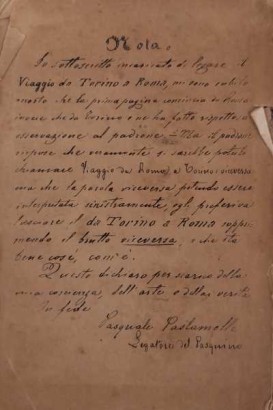 Nota.
Io sottoscritto incaricato di legare il
Viaggio da Torino a Roma, mi sono subito
che la prima pagina comincia da
invece che da Torino e ne ho fatto rispettosa
osservazione al padrone. — Ma il padrone
rispose che si sarebbe potuto
chiamare Viaggio da Roma a Torino
ma che la parola viceversa potendo essere
interpretata sinistramente, egli preferiva
lasciare il da Torino a Roma soppri-
mendo il brutto viceversa, e che sta
bene così, com'è.
Questo dichiaro per scarico della
mia coscienza, dell'arte e della verità
In fede
Pasquale
Legatore del